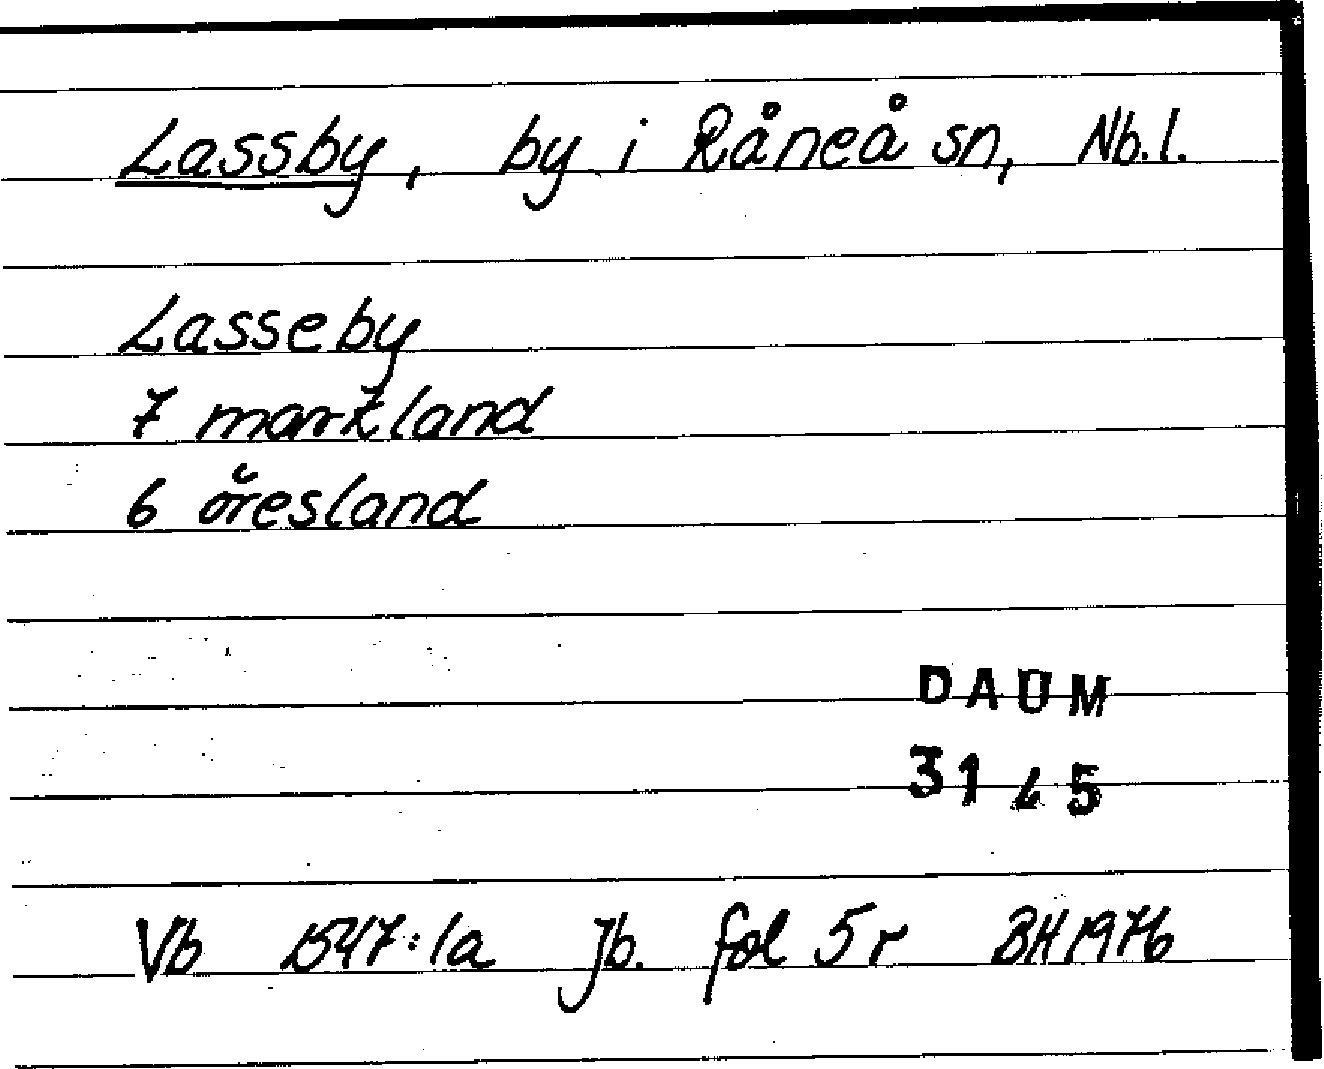 Lassby, by i Råneå sn, Nb.l.
Lasseby
7 markland
6 öresland
DAUM
3145
Vb 1547:1a Jb. fol 5r BH 1976